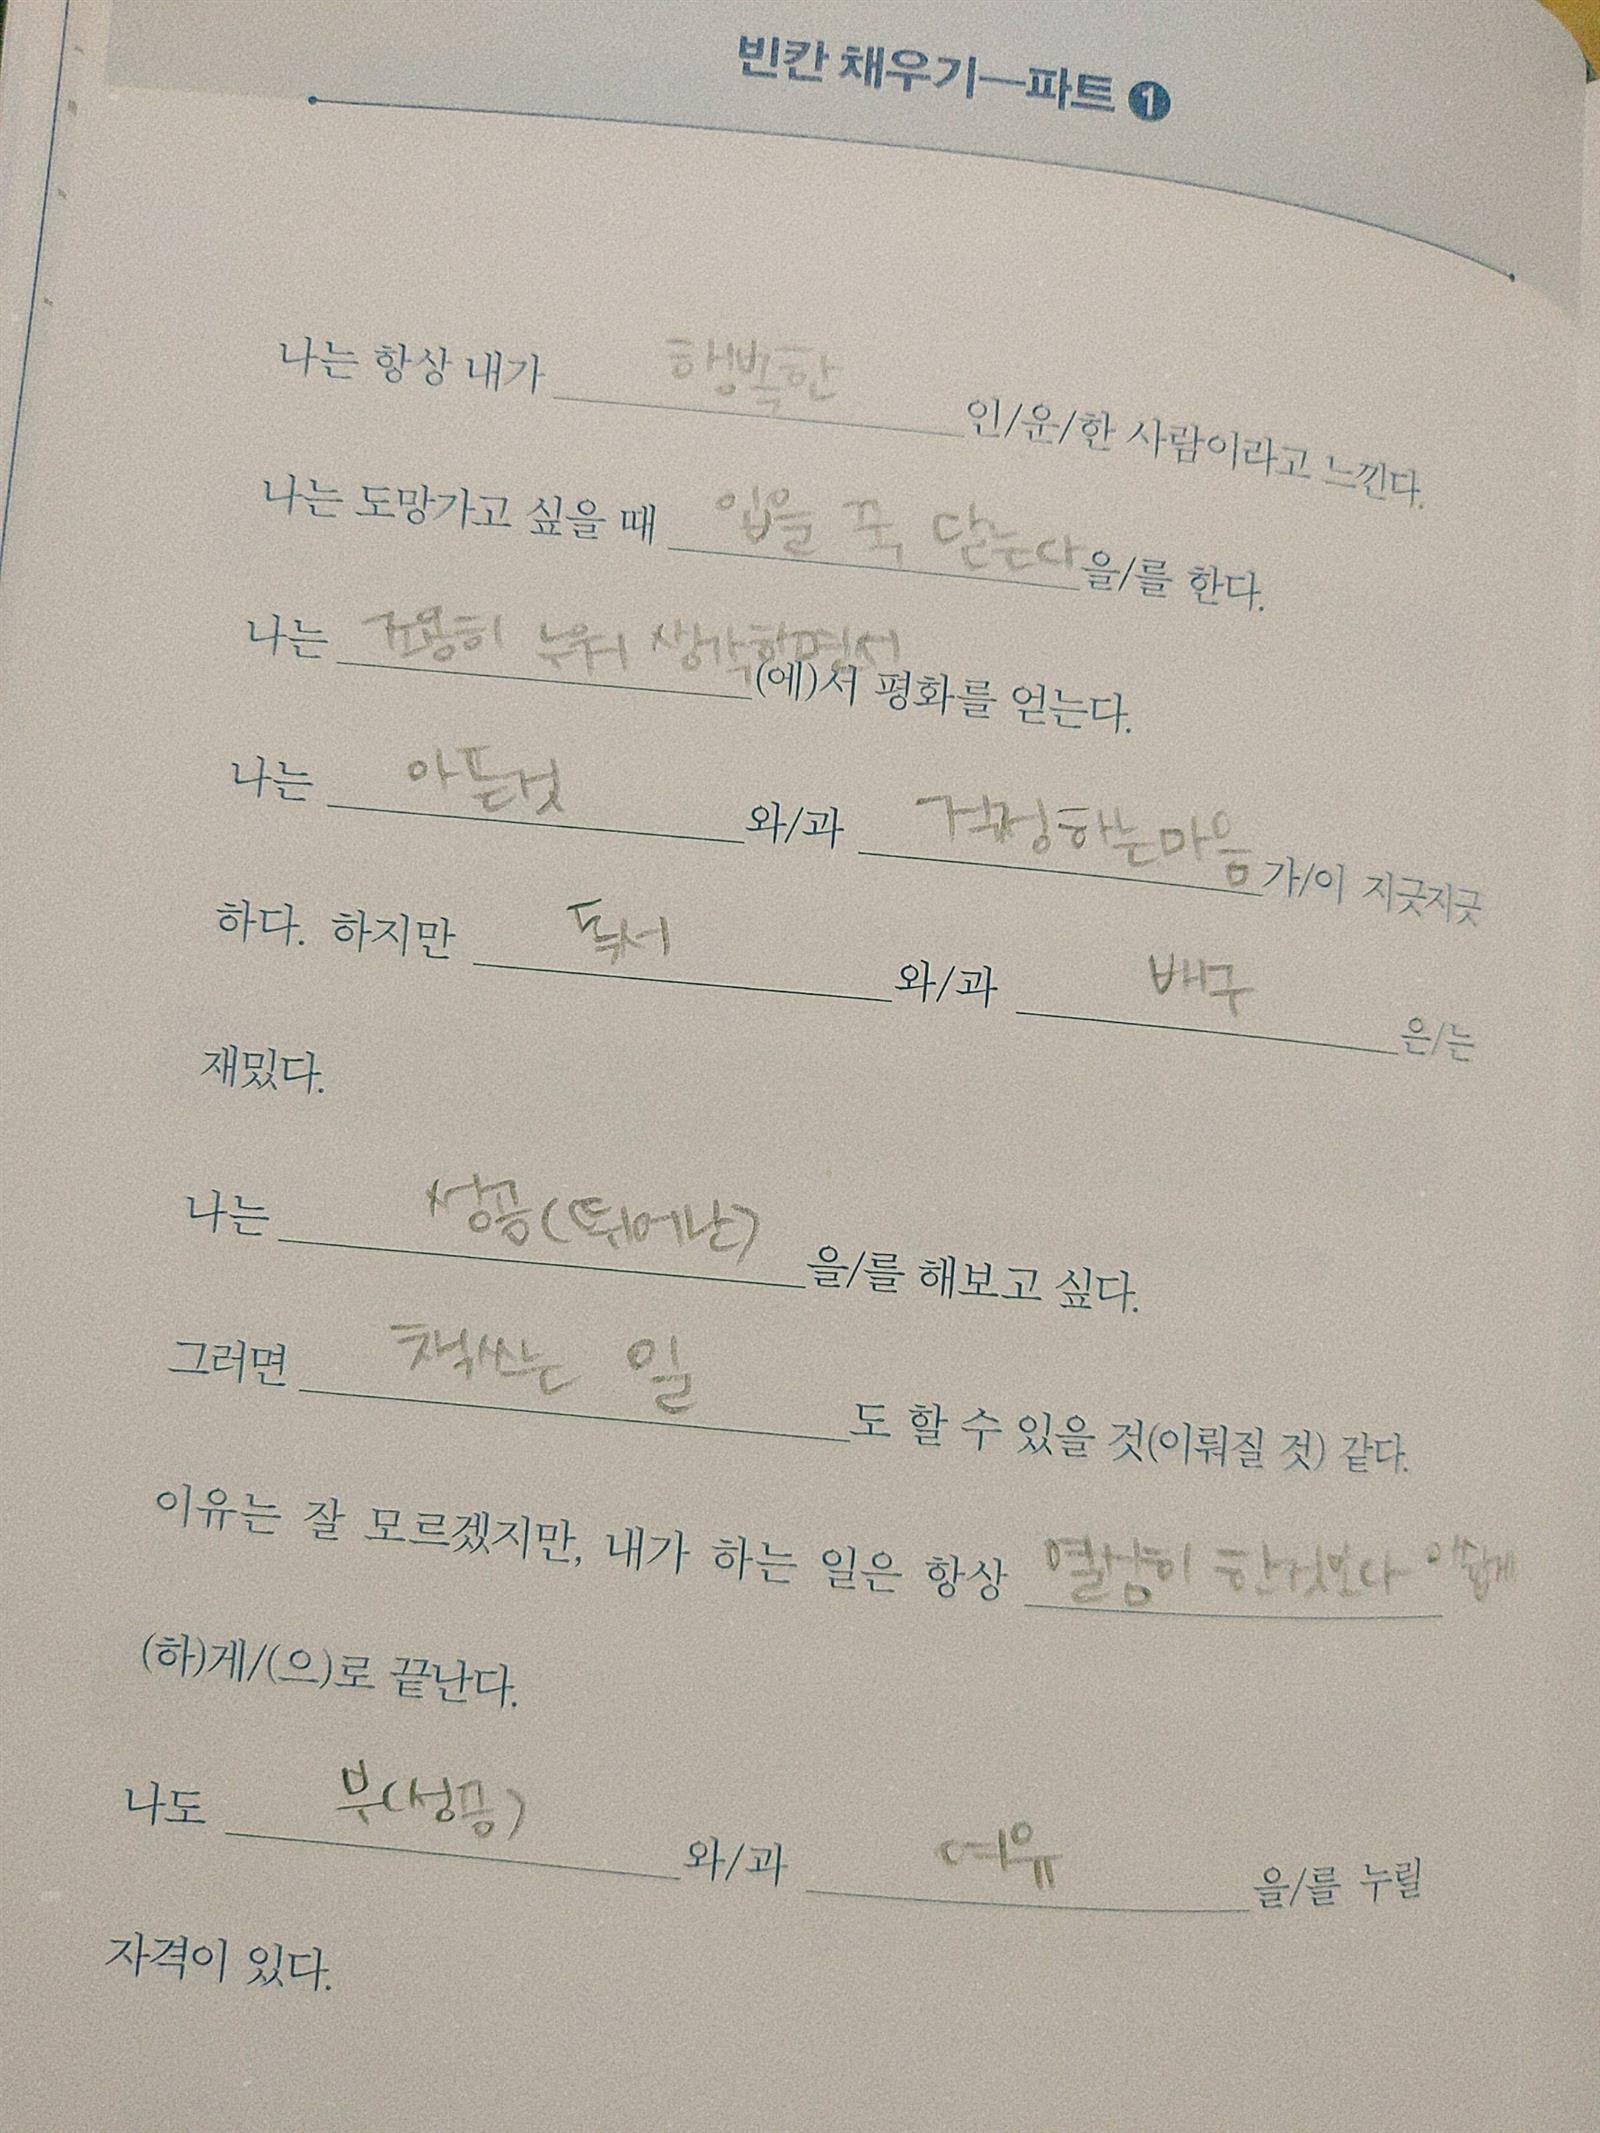 빈칸 채우기—파트 ❶
나는 항상 내가 행복한 인/운/한 사람이라고 느낀다.
나는 도망가고 싶을 때 입을 꾹 닫는다 을/를 한다.
나는 조용히 누워 생각하면서 (에)서 평화를 얻는다.
나는 아픈것 와/과 걱정하는마음 가/이 지긋지긋
하다. 하지만 독서 와/과 배구 은/는
재밌다.
나는 성공(뛰어난) 을/를 해보고 싶다.
그러면 책쓰는 일 도 할 수 있을 것(이뤄질 것) 같다.
이유는 잘 모르겠지만, 내가 하는 일은 항상 열심히 한것보다 아쉽게
(하)게/(으)로 끝난다.
나도 부(성공) 와/과 여유 을/를 누릴
자격이 있다.